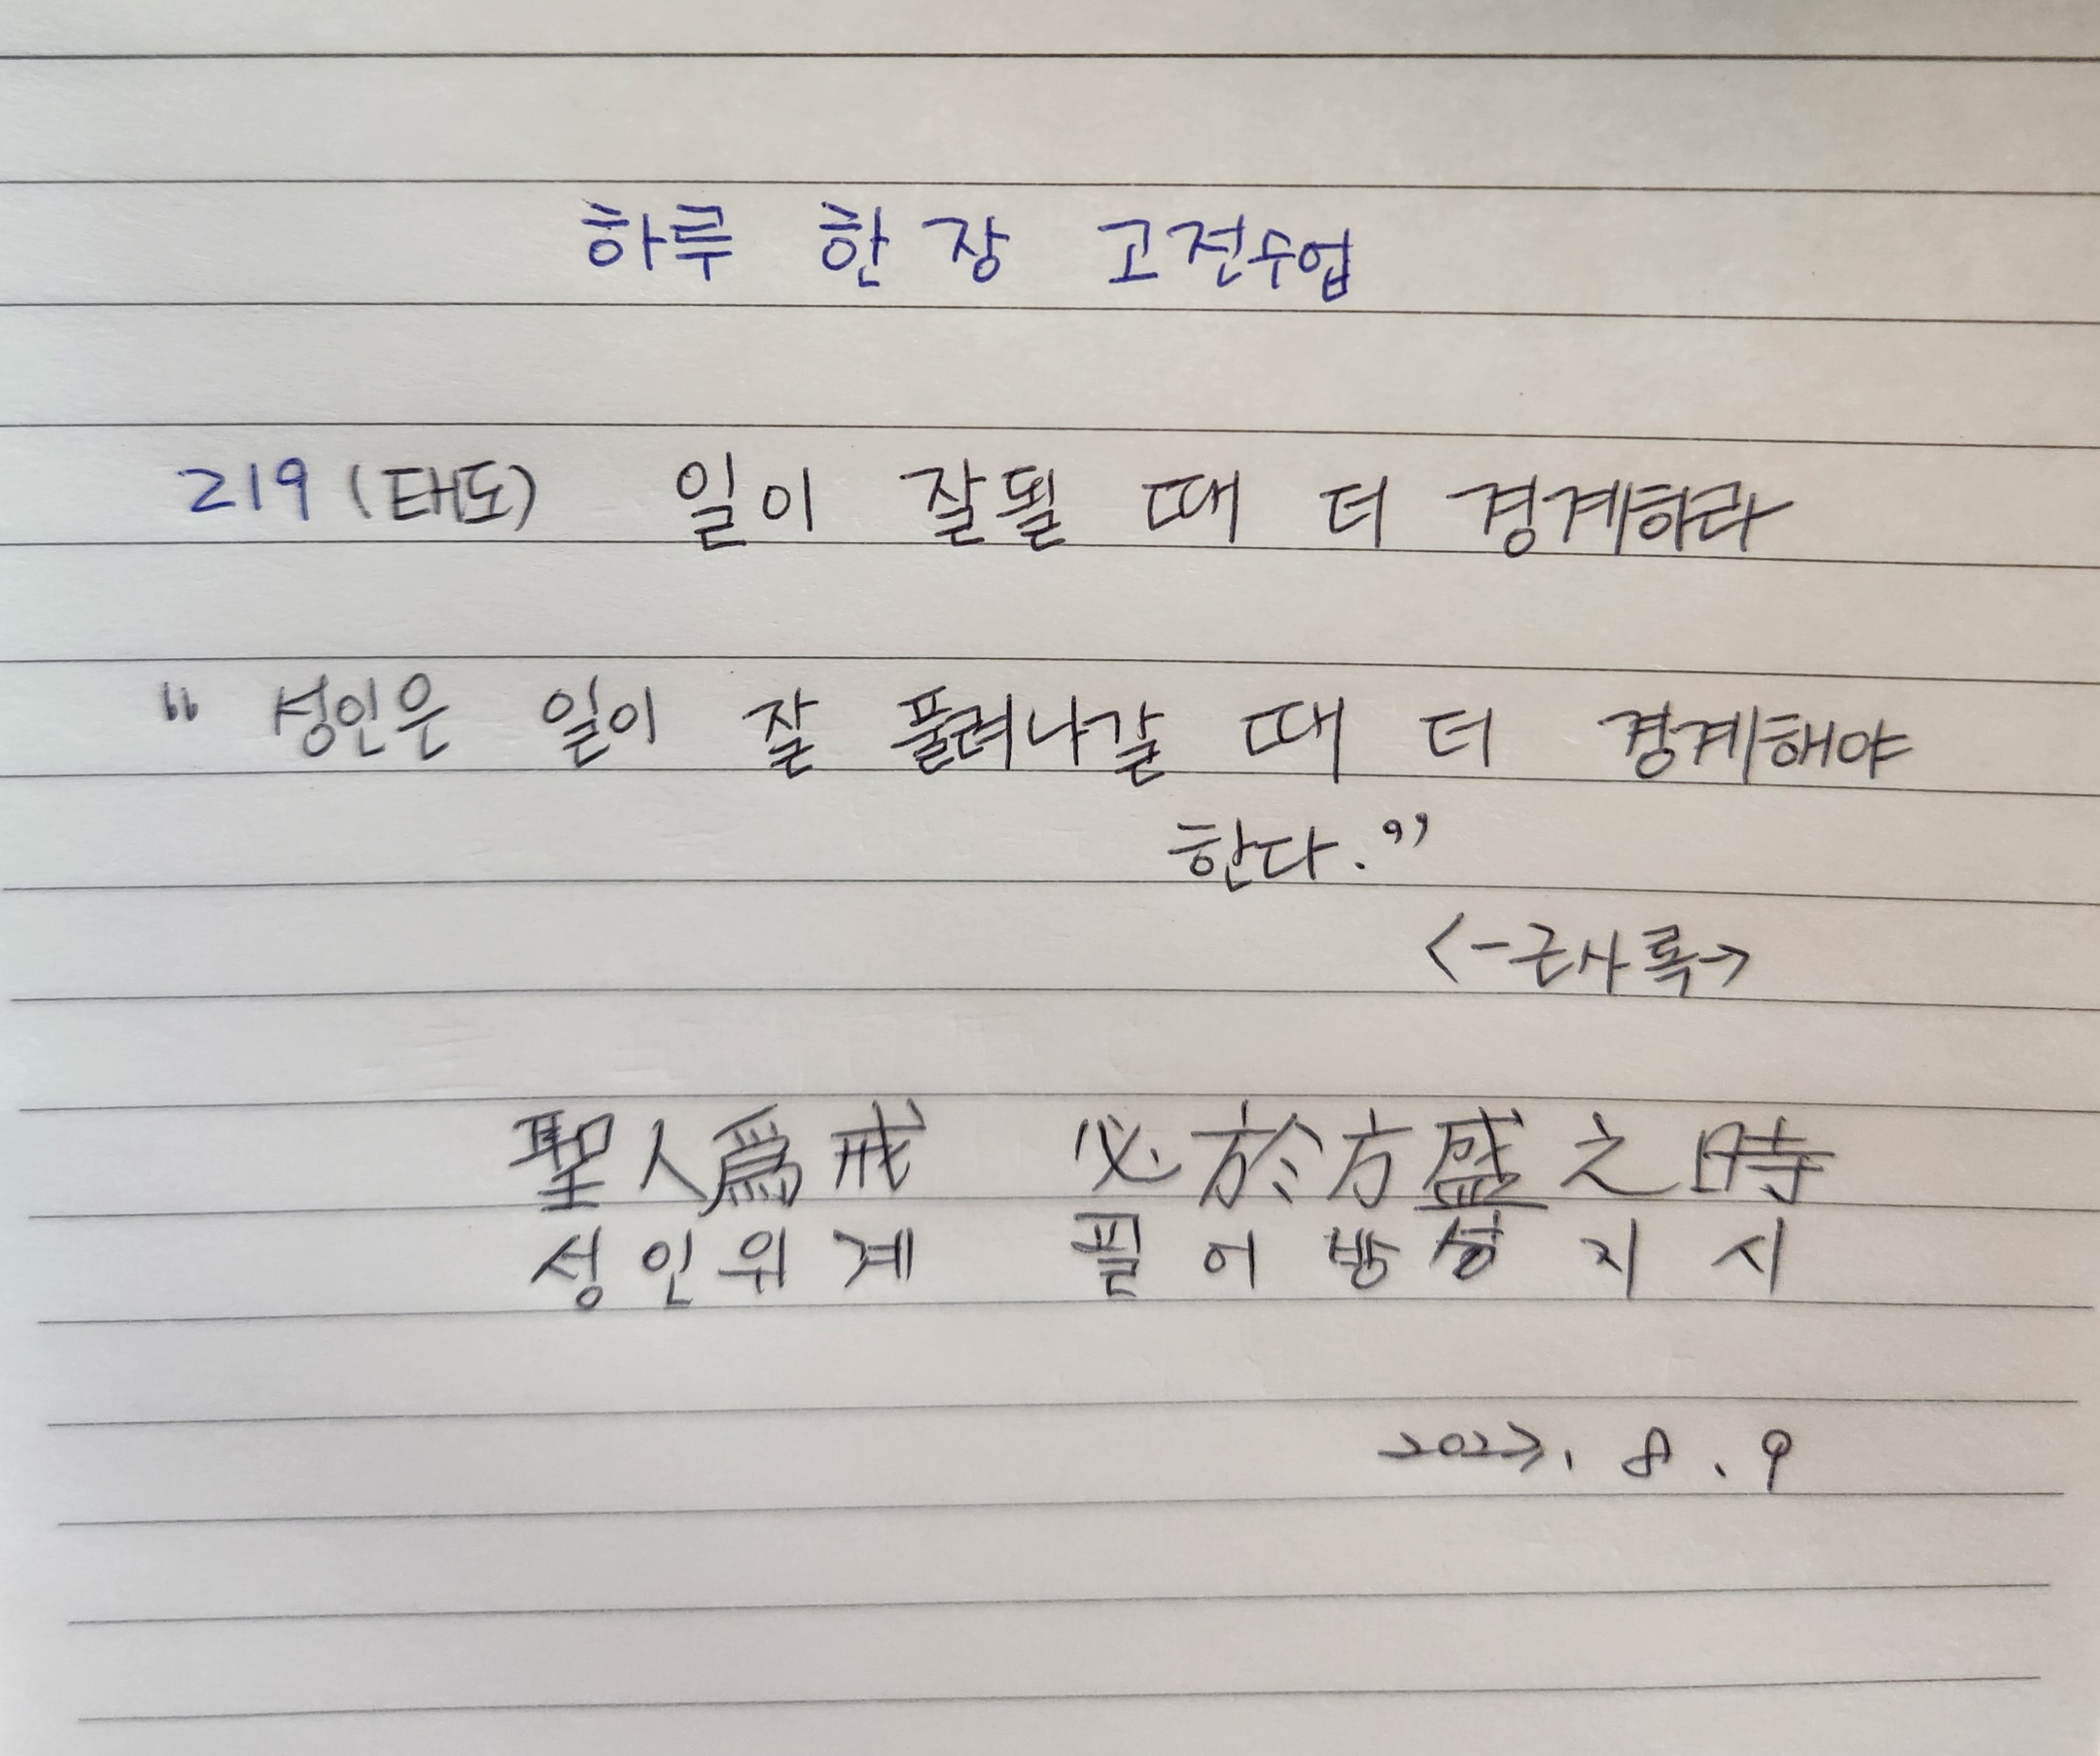 하루 한 장 고전수업
219 (태도) 일이 잘될 때 더 경계하라
“ 성인은 일이 잘 풀려나갈 때 더 경계해야
한다.”
<-근사록->
聖人爲戒 必於方盛之時
성인위계 필어방성지시
2023. 8. 9